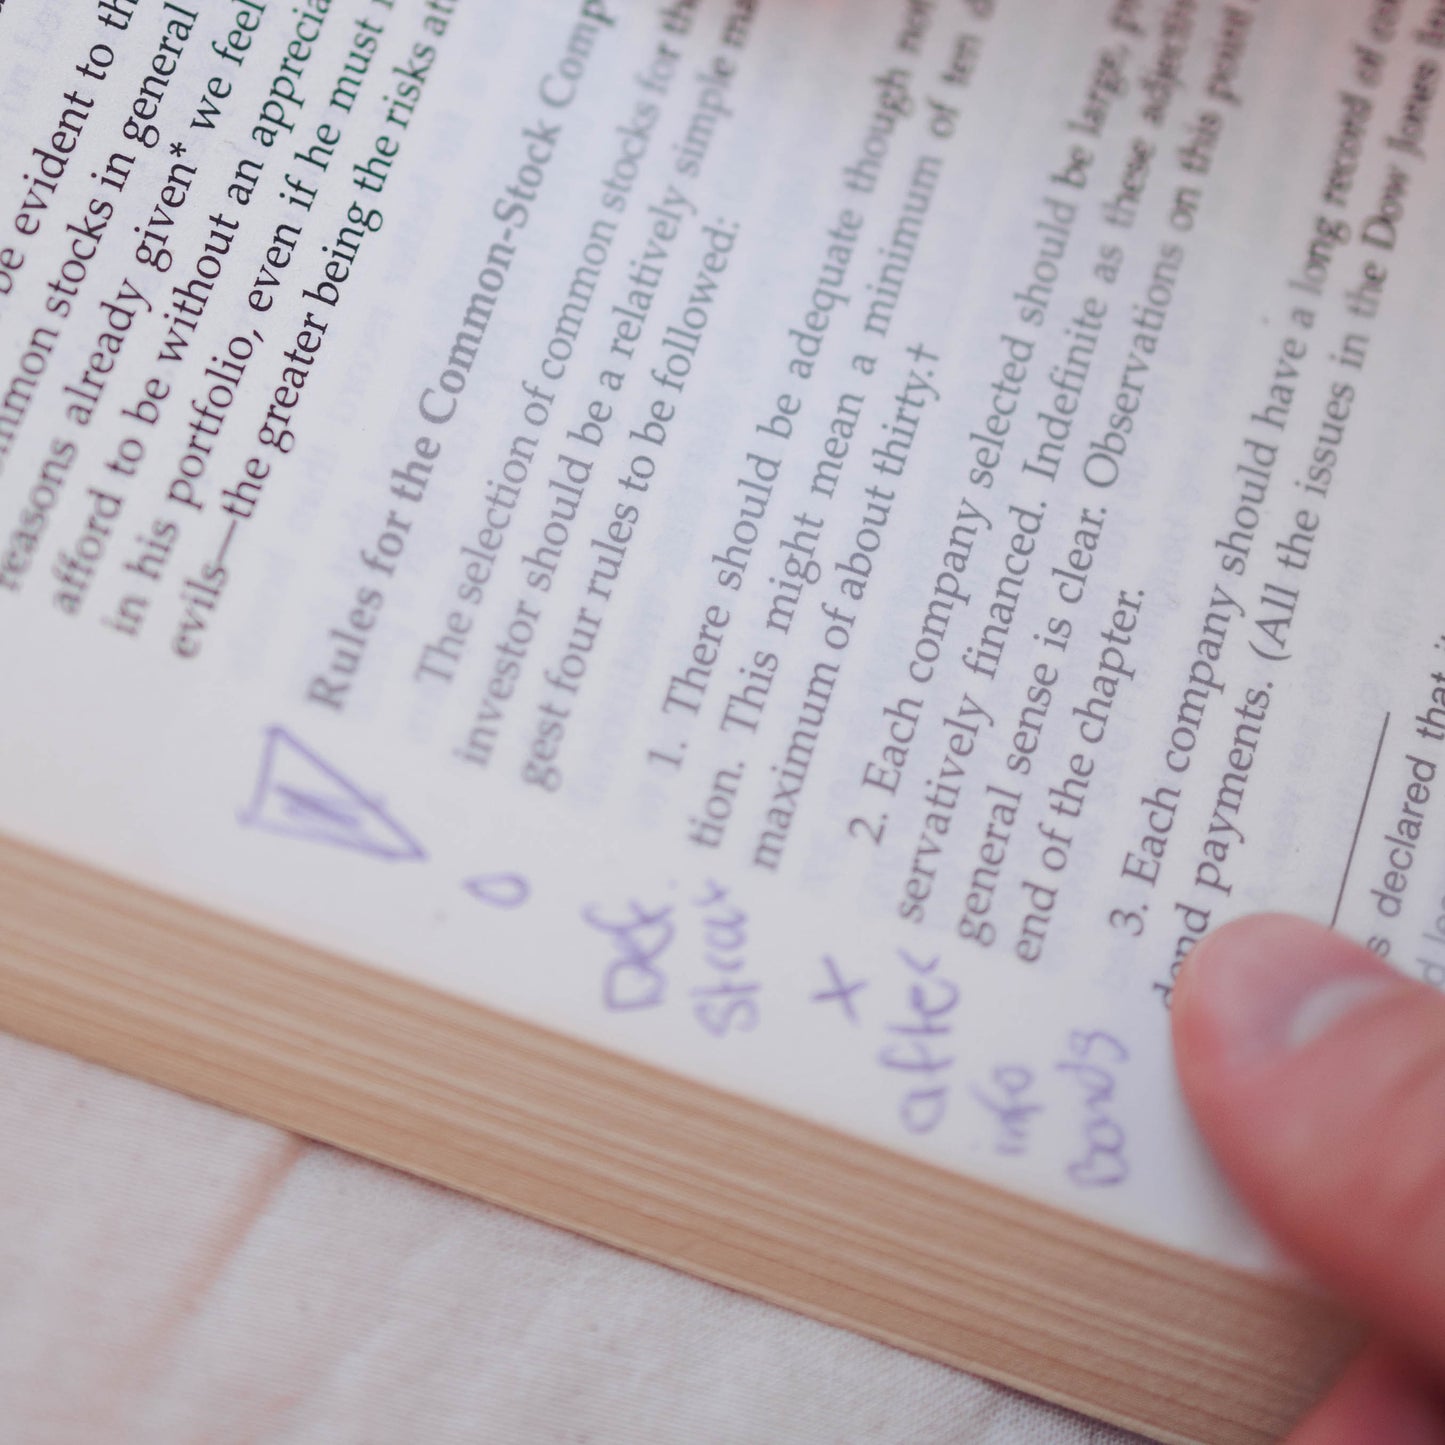 be evident to th
mmon stocks in general
reasons already given* we feel
afford to be without an apprecia
in his portfolio, even if he must
evils—the greater being the risks at
Rules for the Common-Stock Comp
The selection of common stocks for th
investor should be a relatively simple ma
gest four rules to be followed:
1. There should be adequate though not
tion. This might mean a minimum of ten d
maximum of about thirty.†
2. Each company selected should be large, p
servatively financed. Indefinite as these adjectiv
general sense is clear. Observations on this point
end of the chapter.
3. Each company should have a long record of con
dend payments. (All the issues in the Dow Jones In
s declared that
Def.
Strat
x
after
info
Bonds